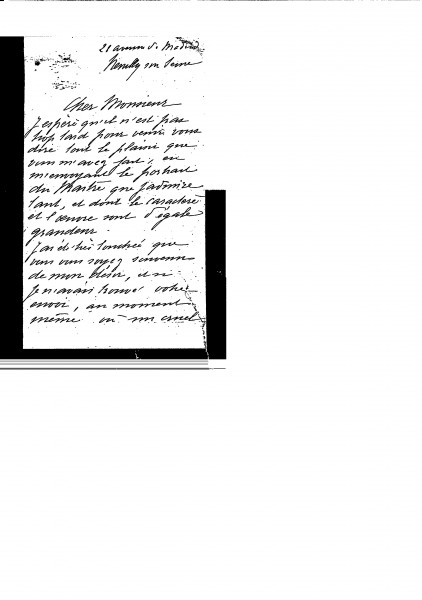 21 avenue de Madrid
Neuilly sur Seine
Cher Monsieur
J'espère qu'il n'est pas
trop tard pour venir vous
dire tout le plaisir que
vous m'avez fait, en
m'envoyant le portrait
du Maître que j'admire
tant, et dont le caractère
et l'œuvre sont d'égale
grandeur.
J'ai été très touchée que
vous vous soyez souvenu
de mon désir, et si
je n'avais trouvé votre
envoi, au moment
même où un cruel